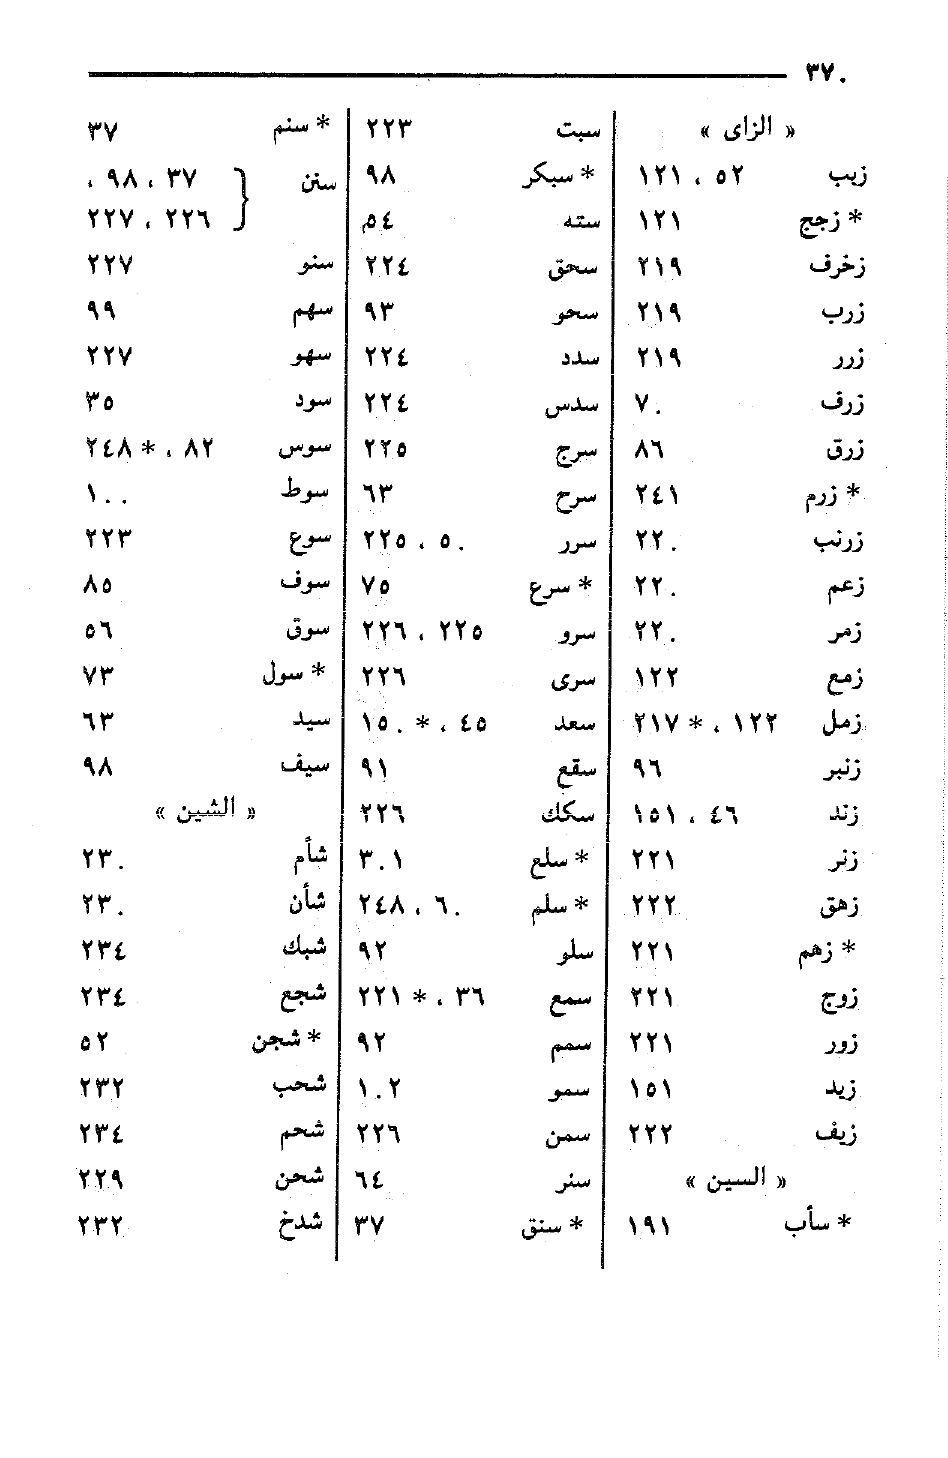 ٣٧٠
« الزاى »
زيب ٥٢ ، ١٢١
* زجج ١٢١
زخرف ٢١٩
زرب ٢١٩
زرر ٢١٩
زرف ٧٠
زرق ٨٦
* زرم ٢٤١
زرنب ٢٢٠
زعم ٢٢٠
زمر ٢٢٠
زمع ١٢٢
زمل ١٢٢ ، * ٢١٧
زنبر ٩٦
زند ٤٦ ، ١٥١
زنر ٢٢١
زهق ٢٢٢
* زهم ٢٢١
زوج ٢٢١
زور ٢٢١
زيد ١٥١
زيف ٢٢٢
« السين »
* سأب ١٩١
سبت ٢٢٣
* سبكر ٩٨
سته ٥٤
سحق ٢٢٤
سحو ٩٣
سدد ٢٢٤
سدس ٢٢٤
سرج ٢٢٥
سرح ٦٣
سرر ٥٠ ، ٢٢٥
* سرع ٧٥
سرو ٢٢٥ ، ٢٢٦
سرى ٢٢٦
سعد ٤٥ ، * ١٥٠
سقع ٩١
سكك ٢٢٦
* سلع ٣٠١
* سلم ٦٠ ، ٢٤٨
سلو ٩٢
سمع ٣٦ ، * ٢٢١
سمم ٩٢
سمو ١٠٢
سمن ٢٢٦
سنر ٦٤
* سنق ٣٧
* سنم ٣٧
سنن } ٣٧ ، ٩٨ ،
٢٢٦ ، ٢٢٧
سنو ٢٢٧
سهم ٩٩
سهو ٢٢٧
سود ٣٥
سوس ٨٢ ، * ٢٤٨
سوط ١٠٠
سوع ٢٢٣
سوف ٨٥
سوق ٥٦
* سول ٧٣
سيد ٦٣
سيف ٩٨
« الشين »
شأم ٢٣٠
شأن ٢٣٠
شبك ٢٣٤
شجع ٢٣٤
* شجن ٥٢
شحب ٢٣٢
شحم ٢٣٤
شحن ٢٢٩
شدخ ٢٣٢